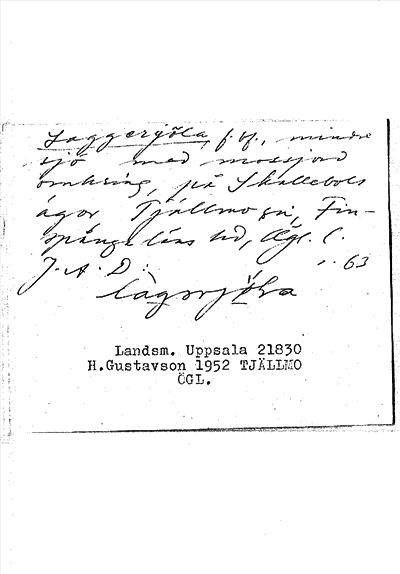 Laggergöla, f. bf., mindre
sjö med mossjord
omkring, på Skallebols
ägor Tjällmo sn, Fin-
spånga läns hd, Ögl. l.
J.A.D. 63
Landsm. Uppsala 21830
H.Gustavson 1952 TJÄLLMO
ÖGL.